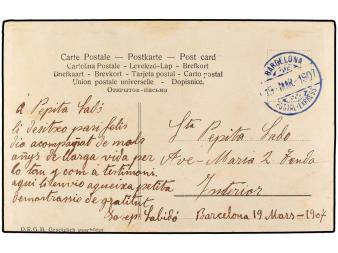 Carte Postale – Postkarte – Post card
Cartolina Postale - Levelező-Lap - Brefkort
Briefkaart - Brevkort - Tarjeta postal - Carto postal
Union postale universelle - Dopisnice.
Открытое письмо
BARCELONA
19 MAR. 1907
POSTAL-EXPRESS
á Pepita Sabé
li desitxo pari felis
dia acompañat de mols
añys de llarga vida per
lo tan y com á testimoni
aqui li envio aqueixa petita
demostrasio de gratitut
Josep Sabidó
Sta Pepita Sabe
Ave-Maria 2 Tenda
Interior
Barcelona 19 Mars-1907
D.R.G.M.